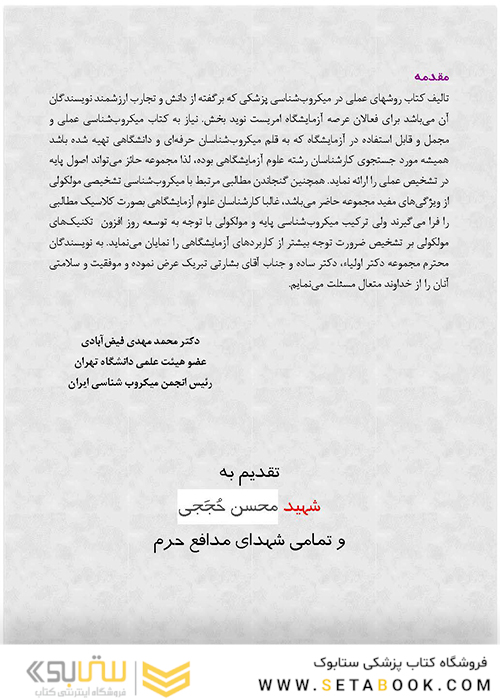 مقدمه
تالیف کتاب روشهای عملی در میکروب‌شناسی پزشکی که برگفته از دانش و تجارب ارزشمند نویسندگان
آن می‌باشد برای فعالان عرصه آزمایشگاه امریست نوید بخش. نیاز به کتاب میکروب‌شناسی عملی و
مجمل و قابل استفاده در آزمایشگاه که به قلم میکروب‌شناسان حرفه‌ای و دانشگاهی تهیه شده باشد
همیشه مورد جستجوی کارشناسان رشته علوم آزمایشگاهی بوده، لذا مجموعه حائز می‌تواند اصول پایه
در تشخیص عملی را ارائه نماید. همچنین گنجاندن مطالبی مرتبط با میکروب‌شناسی تشخیصی مولکولی
از ویژگی‌های مفید مجموعه حاضر می‌باشد، غالبا کارشناسان علوم آزمایشگاهی بصورت کلاسیک مطالبی
را فرا می‌گیرند ولی ترکیب میکروب‌شناسی پایه و مولکولی با توجه به توسعه روز افزون تکنیک‌های
مولکولی بر تشخیص ضرورت توجه بیشتر از کاربردهای آزمایشگاهی را نمایان می‌نماید. به نویسندگان
محترم مجموعه دکتر اولیاء، دکتر ساده و جناب آقای بشارتی تبریک عرض نموده و موفقیت و سلامتی
آنان را از خداوند متعال مسئلت می‌نمایم.
دکتر محمد مهدی فیض‌آبادی
عضو هیئت علمی دانشگاه تهران
رئیس انجمن میکروب شناسی ایران
تقدیم به
شهید محسن حُجَجی
و تمامی شهدای مدافع حرم
فروشگاه کتاب پزشکی ستابوک
WWW.SETABOOK.COM
ستابوک
فروشگاه اینترنتی کتاب